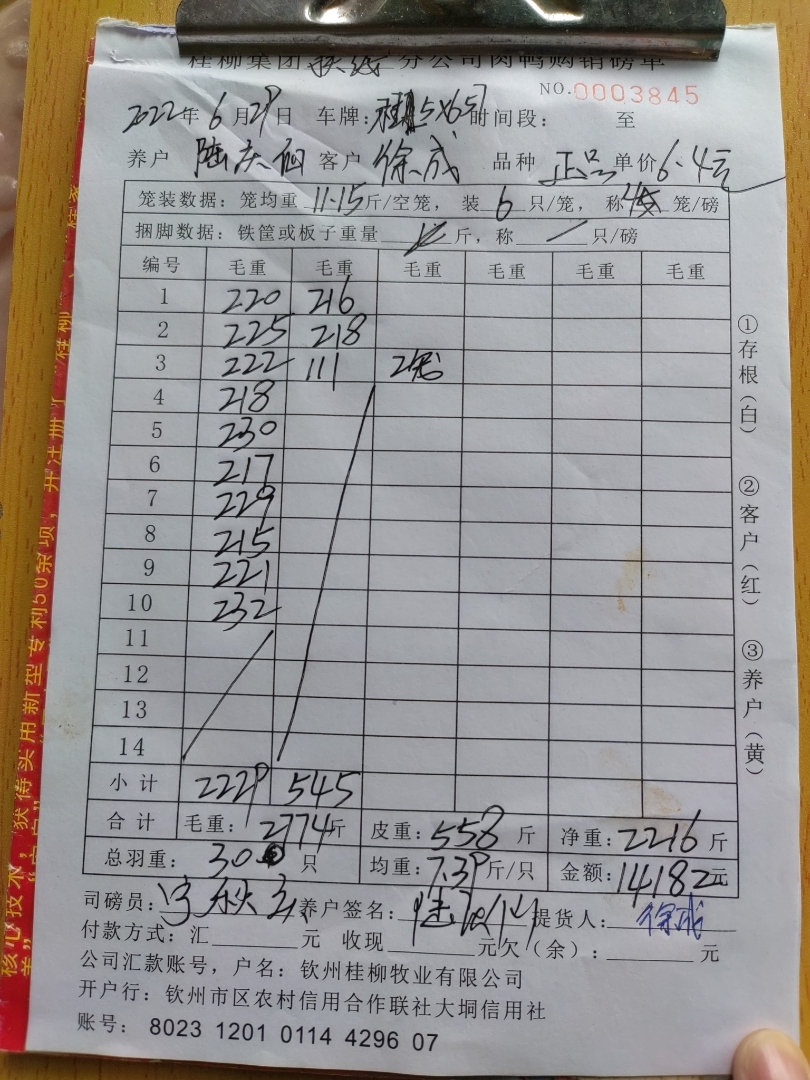 桂柳集团 分公司肉鸭购销磅单
NO.0003845
2022年6月29日 车牌: 时间段: 至
养户 陆庆 客户 徐成 品种 正品 单价6.4元
笼装数据: 笼均重 11.15 斤/空笼, 装 6 只/笼, 称 笼/磅
捆脚数据: 铁筐或板子重量 斤, 称 只/磅
编号 毛重 毛重 毛重 毛重 毛重 毛重
1 220 216
2 225 218
3 222 111 2笼
4 218
5 230
6 217
7 229
8 215
9 221
10 232
11
12
13
14
小计 2229 545
合计 毛重: 2774斤 皮重: 558 斤 净重: 2216 斤
总羽重: 300 只 均重: 7.39斤/只 金额: 14182元
司磅员: 养户签名: 提货人: 徐成
付款方式: 汇 元 收现 元欠(余): 元
公司汇款账号, 户名: 钦州桂柳牧业有限公司
开户行: 钦州市区农村信用合作联社大垌信用社
账号: 8023 1201 0114 4296 07
①存根(白)
②客户(红)
③养户(黄)